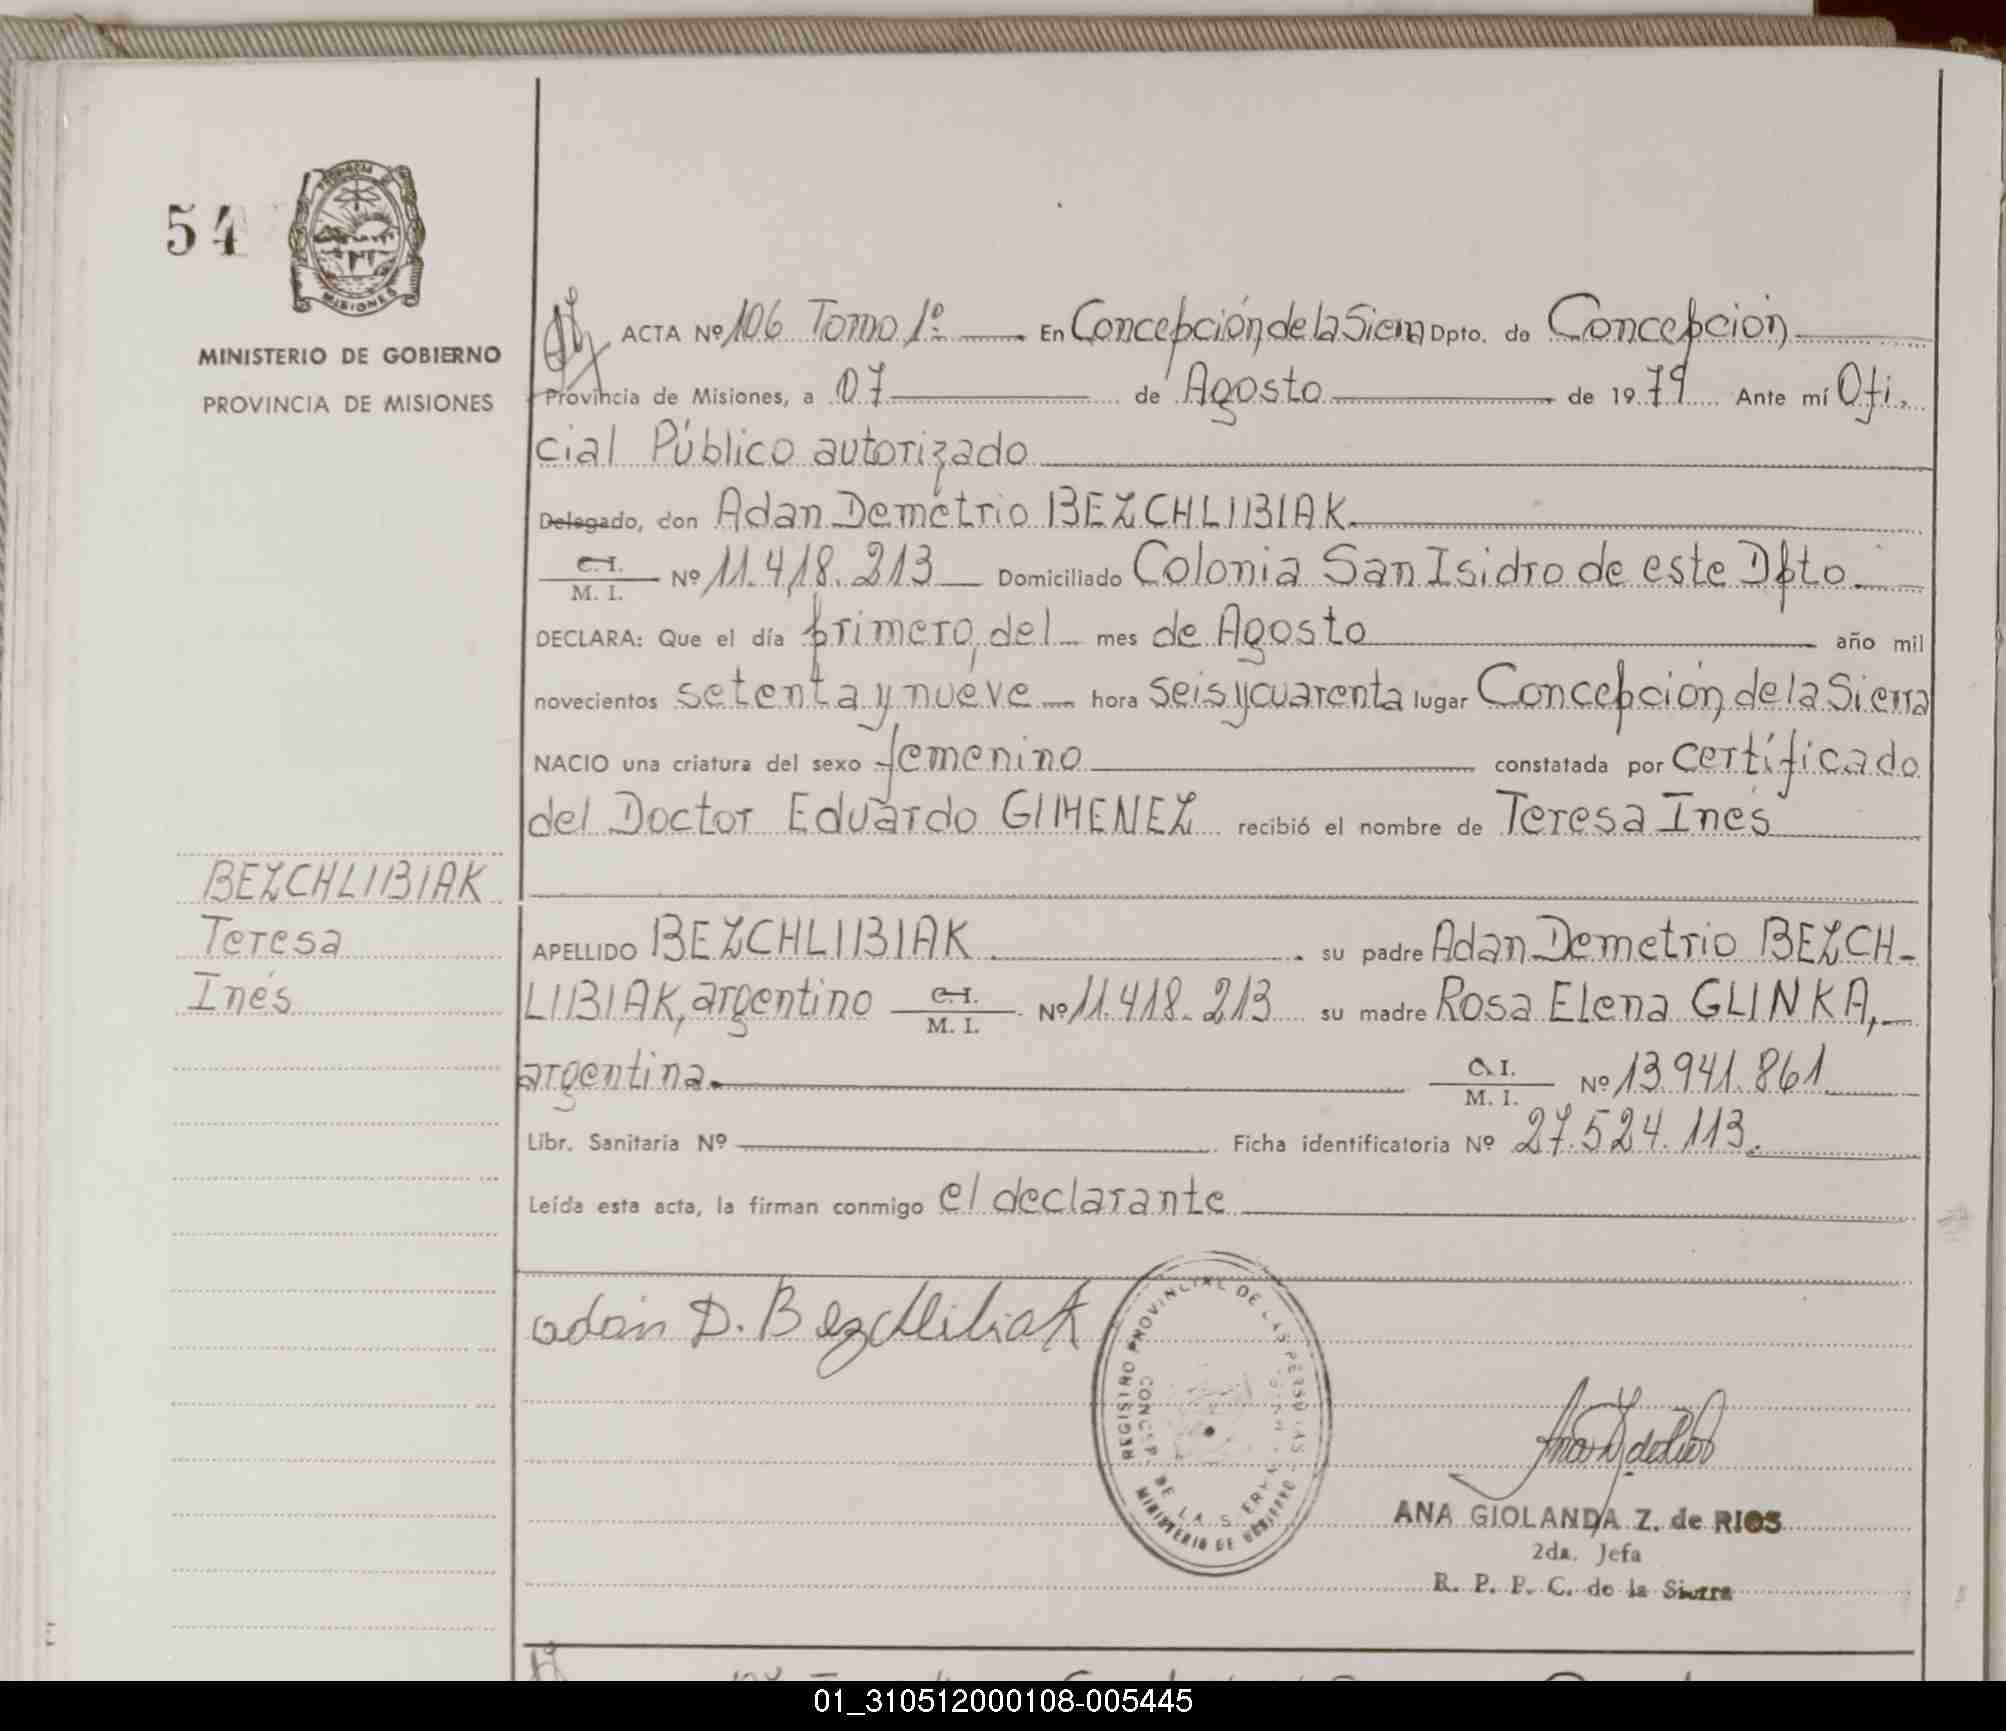 54
PROVINCIA DE
MISIONES
MINISTERIO DE GOBIERNO
PROVINCIA DE MISIONES
BEZCHLIBIAK
Teresa
Inés
ACTA Nº 106 Tomo 1º En Concepción de la Sierra Dpto. de Concepción
Provincia de Misiones, a 07 de Agosto de 1979 Ante mí Ofi-
cial Público autorizado
Delegado, don Adan Demetrio BEZCHLIBIAK
C.I. / M. I. Nº 11.418.213 Domiciliado Colonia San Isidro de este Dpto.
DECLARA: Que el día primero del mes de Agosto año mil
novecientos setenta y nueve hora seis y cuarenta lugar Concepción de la Sierra
NACIO una criatura del sexo femenino constatada por certificado
del Doctor Eduardo GIMENEZ recibió el nombre de Teresa Inés
APELLIDO BEZCHLIBIAK su padre Adan Demetrio BEZCH-
LIBIAK, argentino C.I. / M. I. Nº 11.418.213 su madre Rosa Elena GLINKA,
argentina. C.I. / M. I. Nº 13.941.861
Libr. Sanitaria Nº Ficha identificatoria Nº 27.524.113.
Leída esta acta, la firman conmigo el declarante
adán D. Bezchlibiak
REGISTRO PROVINCIAL DE LAS PERSONAS
CONCEP. DE LA SIERRA
MINISTERIO DE GOBIERNO
ANA GIOLANDA Z. de RIOS
2da. Jefa
R. P. P. C. de la Sierra
01_310512000108-005445